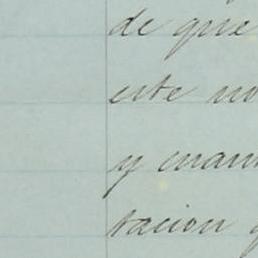 de que
este no
y cuan
tacion